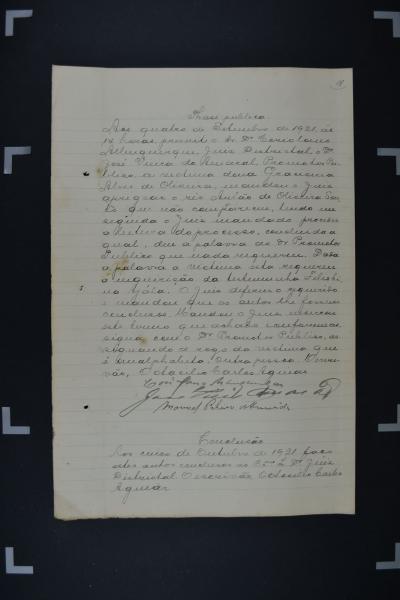 Phase publica
Aos quatro de Setembro de 1921, ás
14 horas, presente o Sr. Dr. Coriolano
Albuquerque, Juiz Districtal, o Dr.
José Vieira do Amaral, Promotor Pu-
blico, a victima dona
Alves de Oliveira, mandou o Juiz
apregoar o réo Antão de Oliveira
que não compareceu, tendo em
seguida o Juiz mandado proceder
a leitura do processo, concluida a
qual, deu a palavra ao Dr. Promotor
Publico que nada requereu. Dada
a palavra a victima esta requereu
a inquirição da testemunha
O Juiz deferiu o requerido
e mandou que os autos lhe fossem
conclusos. Mandou o Juiz encerrar
este termo que achado conforme
assigna com o Dr. Promotor Publico, as-
signando a rogo da victima que
é analphabeta, outra pessoa. O escri-
vão, Octacilio Carlos Aguiar
Manoel Almeida
Conclusão
Aos cinco de Outubro de 1921 faço
estes autos conclusos ao Dr. Juiz
Districtal. O escrivão Octacilio Carlos
Aguiar